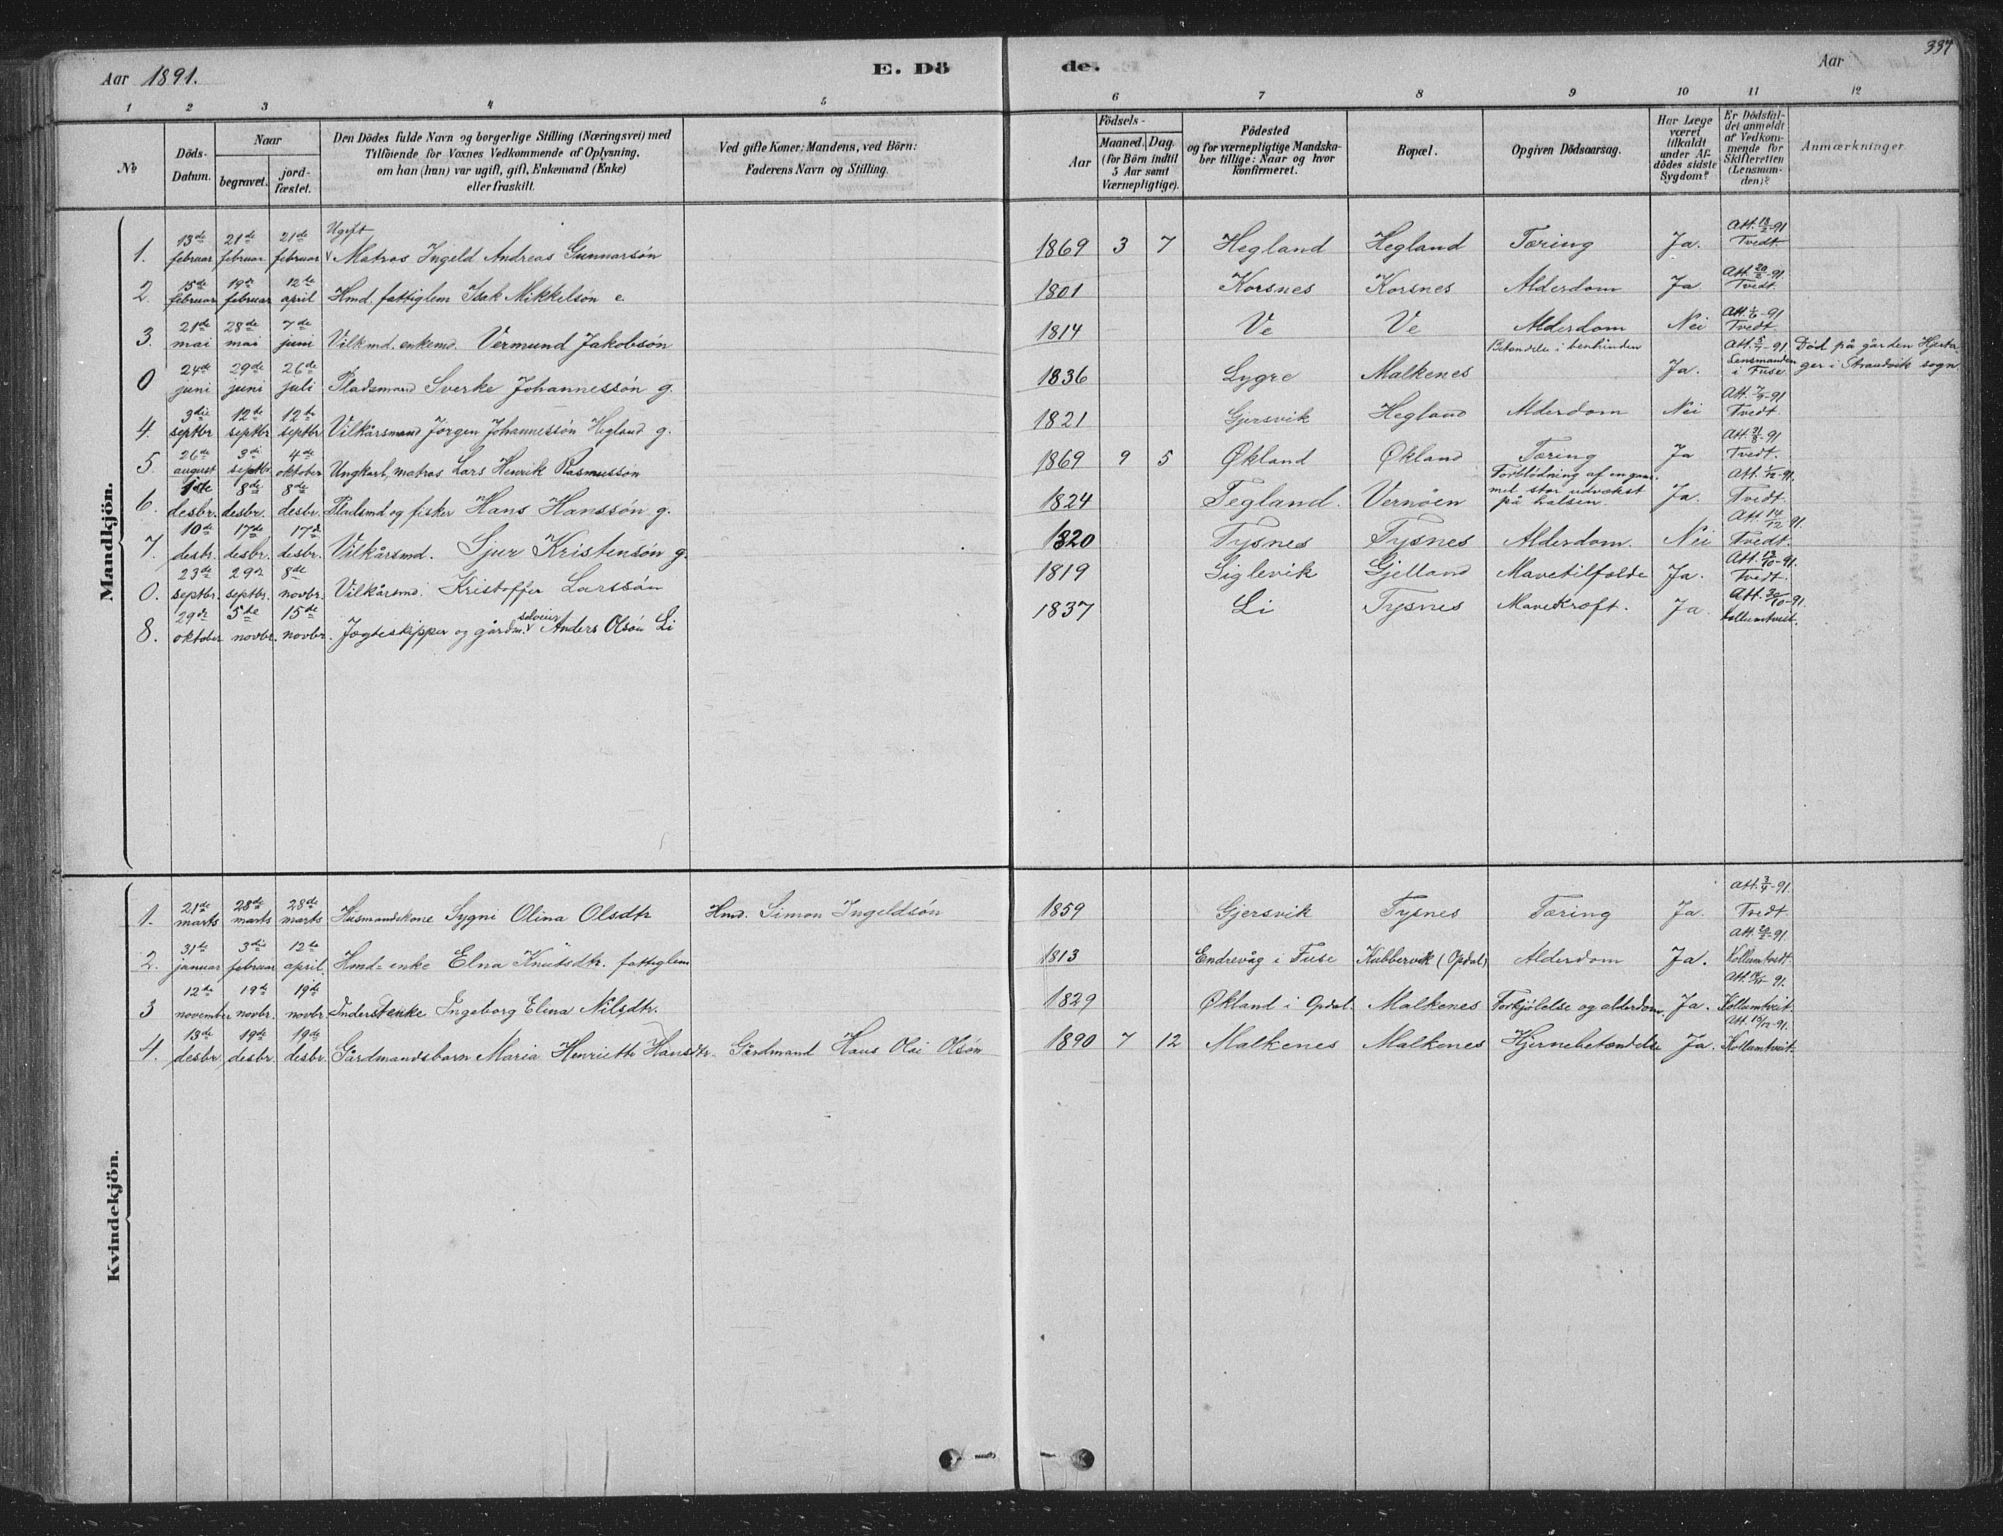 Aar 1891. E. Dö de. Aar 337
1 2 3 4 5 6 7 8 9 10 11 12
No
Döds-Datum.
Naar
begravet.
jord-fæstet.
Den Dödes fulde Navn og borgerlige Stilling (Næringsvei) med
Tilföiende for Voxnes Vedkommende af Oplysning,
om han (hun) var ugift, gift, Enkemand (Enke)
eller fraskilt.
Ved gifte Koner: Mandens, ved Börn:
Faderens Navn og Stilling.
Födsels-
Aar
Maaned. Dag.
(for Börn indtil
5 Aar samt
Værnepligtige).
Födested
og for værnepligtige Mandska-
ber tillige: Naar og hvor
konfirmeret.
Bopæl.
Opgiven Dödsaarsag.
Har Læge
været
tilkaldt
under Af-
dödes sidste
Sygdom?
Er Dödsfal-
det anmeldt
af Vedkom-
mende for
Skifteretten
(Lensman-
den)?
Anmærkninger.
Mandkjön.
1. 13de februar 21de februar 21de februar Ugift Matros Ingeld Andreas Gunnarsön 1869 3 7 Hegland Hegland Tæring Ja. Att. 13/2-91 Tvedt
2. 15de februar 19de februar 12te april Hmd. fattiglem Isak Mikkelsön e. 1801 Korsnes Korsnes Alderdom Ja Att. 20/2-91 Tvedt.
3. 21de mai 28de mai 7de juni Vilkmd. enkemd. Vermund Jakobsön 1814 Ve Ve Alderdom Nei Att. 1/6-91 Tvedt
0 24de juni 29de juni 26de juli Pladsmand Sverke Johannessön g. 1836 Lygre Malkenes Betændelse i benhinden Ja. Att. 3/7-91 Lensmanden i Fuse. Död på gården Hjerta-
ger i Strandvik sogn
4. 3die septbr. 12te septbr. 12te septbr. Vilkårsmand Jörgen Johannessön Hegland g. 1821 Gjersvik Hegland Alderdom Nei Att. 7/9-91 Tvedt.
5. 26de august 3die septbr. 4de oktober Ungkarl, matros Lars Henrik Rasmusson 1869 9 5 Økland Økland Tæring Ja Att. 31/8-91 Tvedt.
6. 1ste desbr. 8de desbr. 8de desbr. Pladsmd og fisker Hans Hanssön g. 1824 Tegland. Vernöen Forblödning af en gam-
mel stor udvækst
på halsen. Ja. Att. 1/12-91. Tvedt.
7. 10de desbr. 17de desbr. 17de desbr. Vilkårsmd. Sjur Kristensön g. 1820 Tysnes Tysnes Alderdom. Nei Att. 14/12 91. Tvedt.
0. 23de septbr. 29de septbr. 8de novbr. Vilkårsmd. Kristoffer Larssön 1819 Siglevik Gjelland Mavetilfælde Ja. Att. 12/10-91. Tvedt.
8. 29de oktober 5te novbr. 15de novbr. Jægteskipper og gårdm. selveier Anders Olsön Li 1837 Li Tysnes Mavekræft. Ja. Att. 30/10-91. Kollumtveit.
Kvindekjön.
1. 21de marts 28de marts 28de marts Husmandskone Sygni Olina Olsdtr Hmd. Simon Ingeldsön 1859 Gjersvik Tysnes Tæring Ja. Att. 3/4-91. Tvedt.
2. 31te januar 3die februar 12te april. Hmd-enke Elna Knutsdtr. fattiglem 1813 Endrevåg i Fuse Kubbervik (Opdal) Alderdom Ja. Att. 20/2-91. Kollumtvedt.
3 12de november 19de novbr. 19de novbr. Inderstenke Ingeborg Elina Nilsdtr. 1829 Økland i Opdal. Malkenes Forkjölelse og alderdom Ja. Kollumtveit.
4. 13de desbr. 19de desbr. 19de desbr. Gårdmandsbarn Maria Henriette Hansdtr. Gårdmand Hans Olai Olsön 1890 7 12 Malkenes Malkenes Hjernebetændelse Ja. Att. 15/12-91. Kollumtveit.